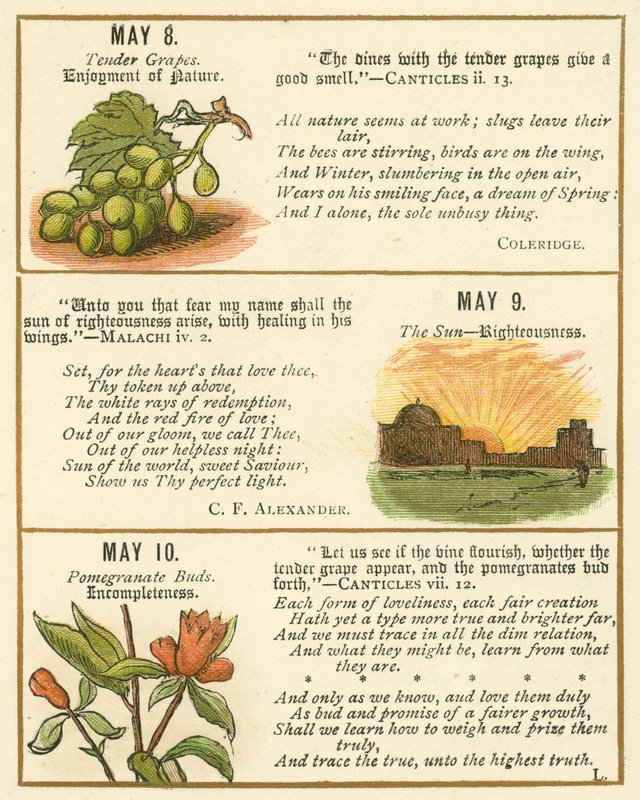 MAY 8.
Tender Grapes.
Enjoyment of Nature.
"The vines with the tender grapes give a
good smell."—CANTICLES ii. 13.
All nature seems at work; slugs leave their
lair,
The bees are stirring, birds are on the wing,
And Winter, slumbering in the open air,
Wears on his smiling face, a dream of Spring:
And I alone, the sole unbusy thing.
COLERIDGE.
"Unto you that fear my name shall the
sun of righteousness arise, with healing in his
wings."—MALACHI iv. 2.
Set, for the heart's that love thee,
Thy token up above,
The white rays of redemption,
And the red fire of love;
Out of our gloom, we call Thee,
Out of our helpless night:
Sun of the world, sweet Saviour,
Show us Thy perfect light.
C. F. ALEXANDER.
MAY 9.
The Sun—Righteousness.
MAY 10.
Pomegranate Buds.
Incompleteness.
"Let us see if the vine flourish, whether the
tender grape appear, and the pomegranates bud
forth,"—CANTICLES vii. 12.
Each form of loveliness, each fair creation
Hath yet a type more true and brighter far,
And we must trace in all the dim relation,
And what they might be, learn from what
they are.
* * * * * * *
And only as we know, aud love them duly
As bud and promise of a fairer growth,
Shall we learn how to weigh and prize them
truly,
And trace the true, unto the highest truth.
L.